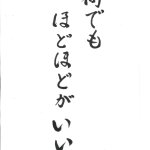 何でも
ほどほどが いい